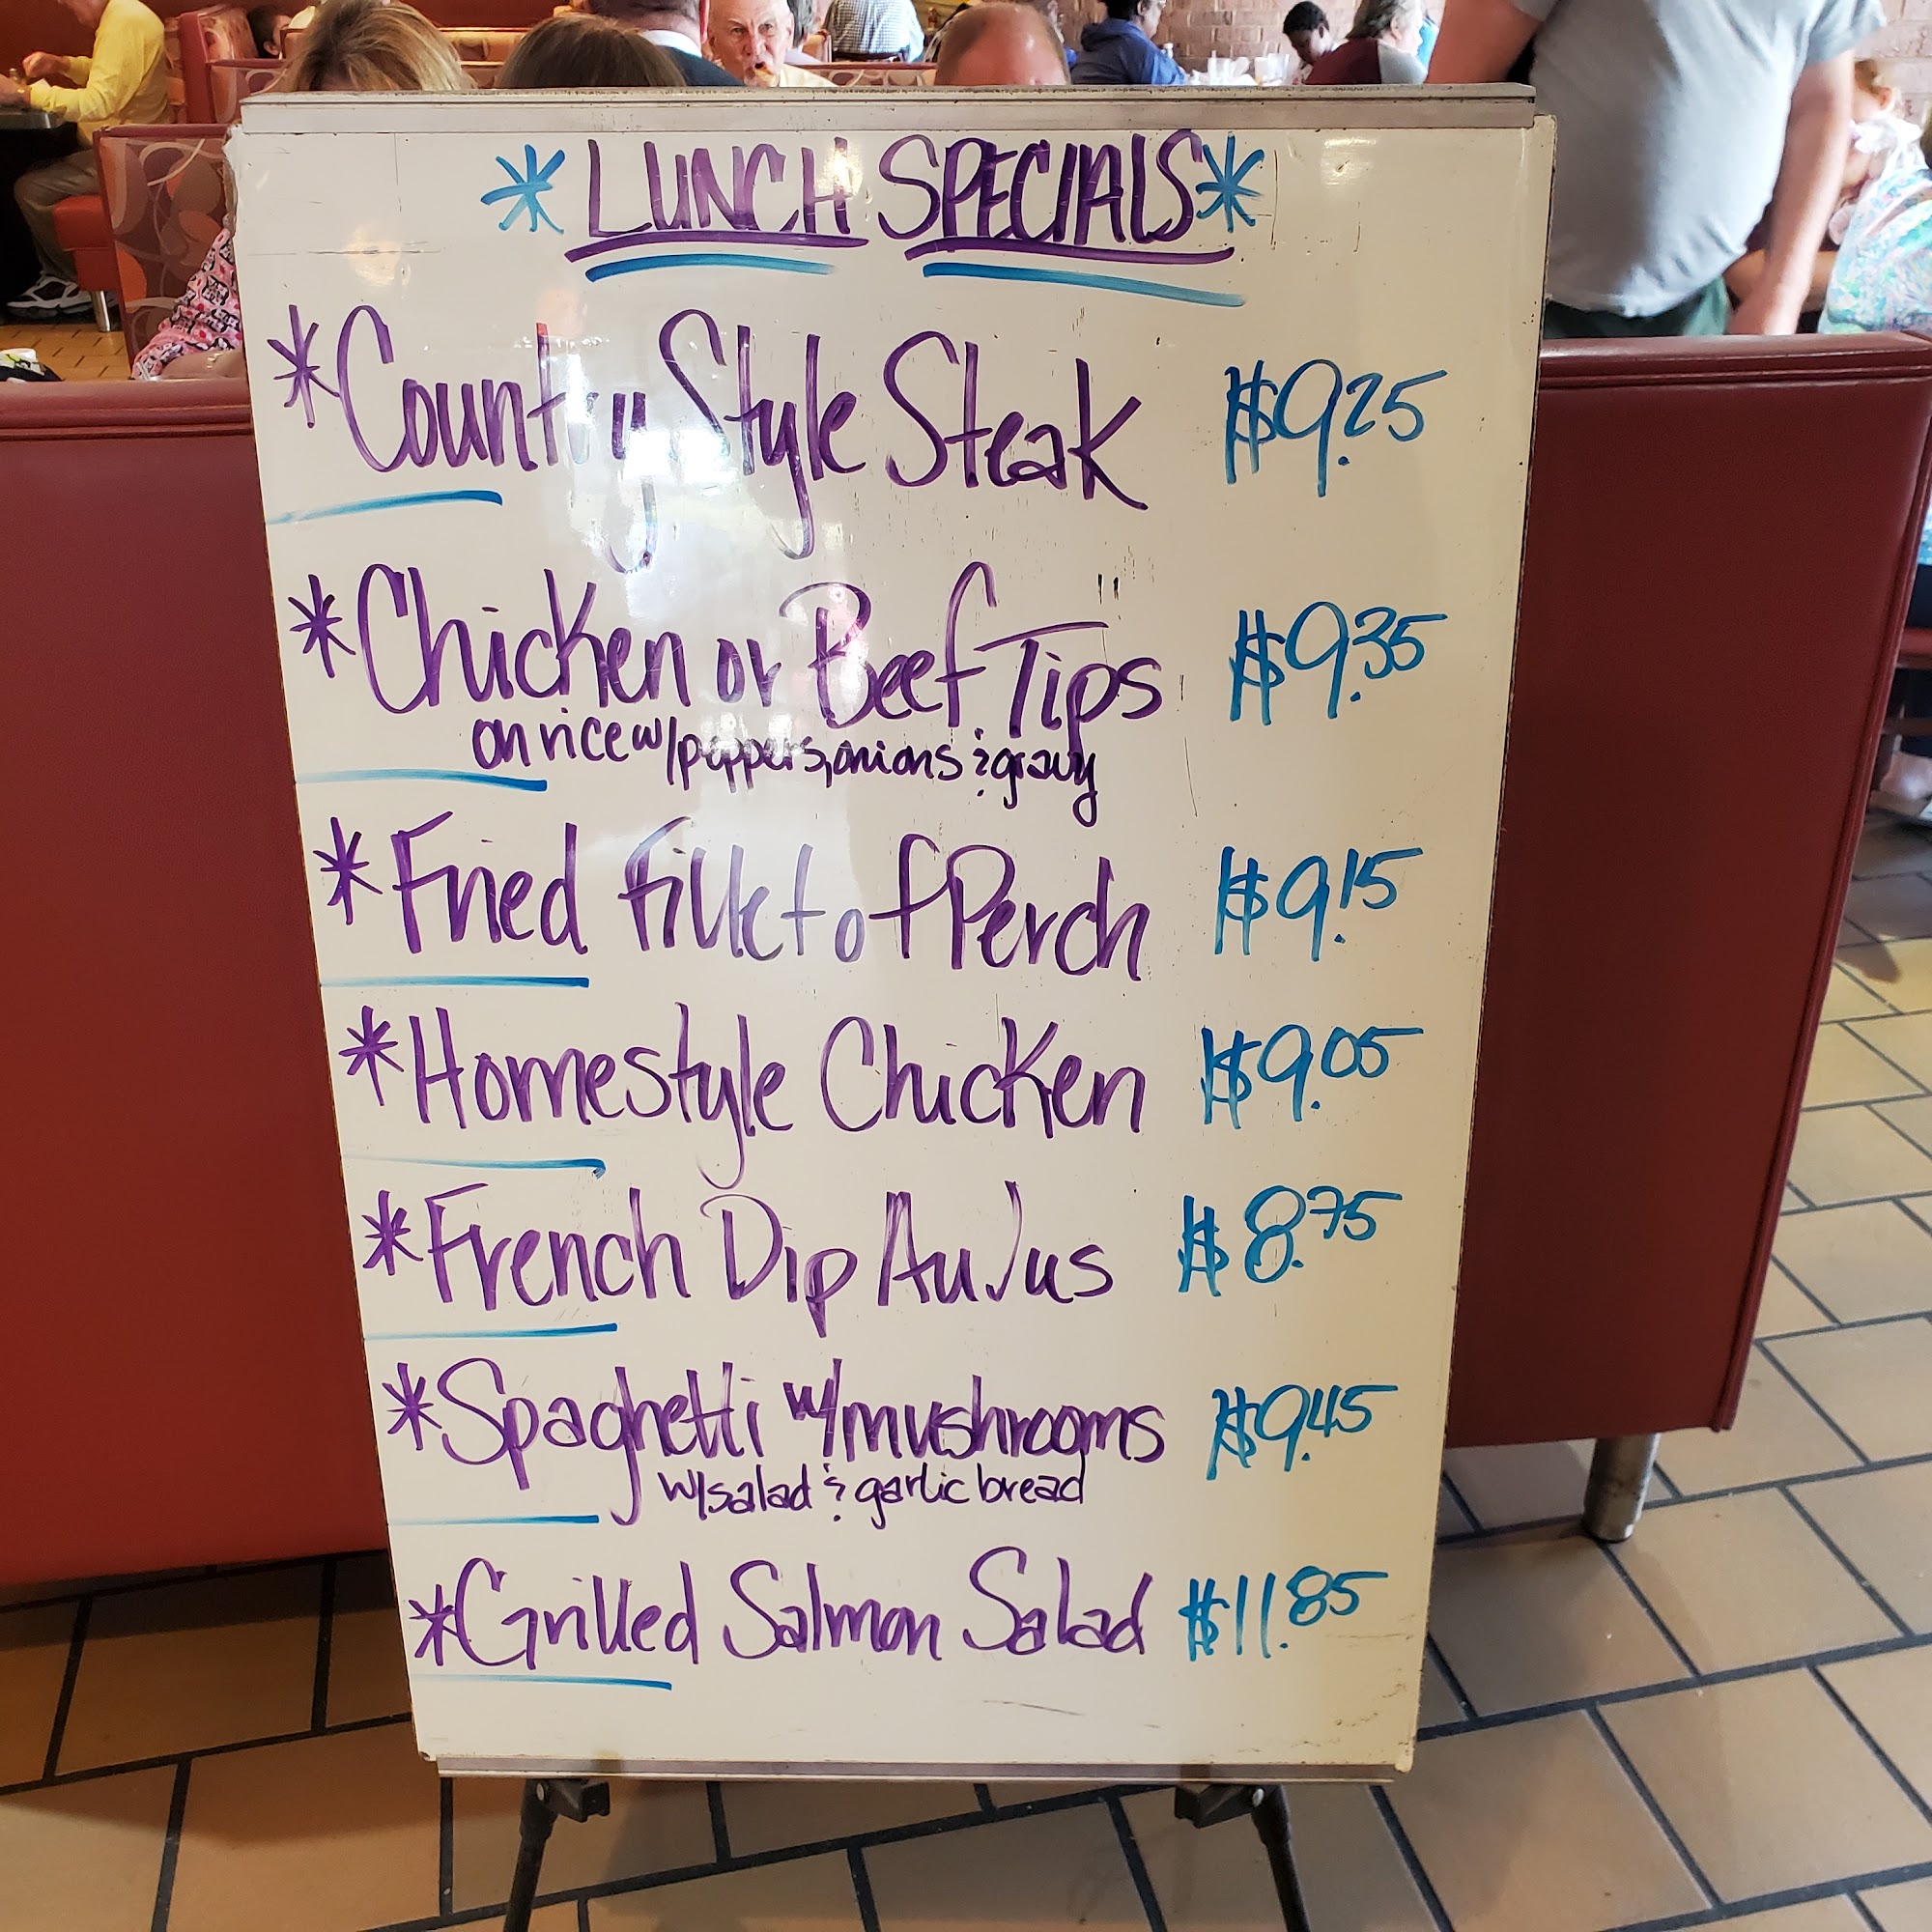 *LUNCH SPECIALS*
*Country Style Steak $9.25
*Chicken or Beef Tips $9.35
on rice w/peppers, onions & gravy
*Fried Fillet of Perch $9.15
*Homestyle Chicken $9.05
*French Dip Au Jus $8.75
*Spaghetti w/mushrooms $9.45
w/salad & garlic bread
*Grilled Salmon Salad $11.85